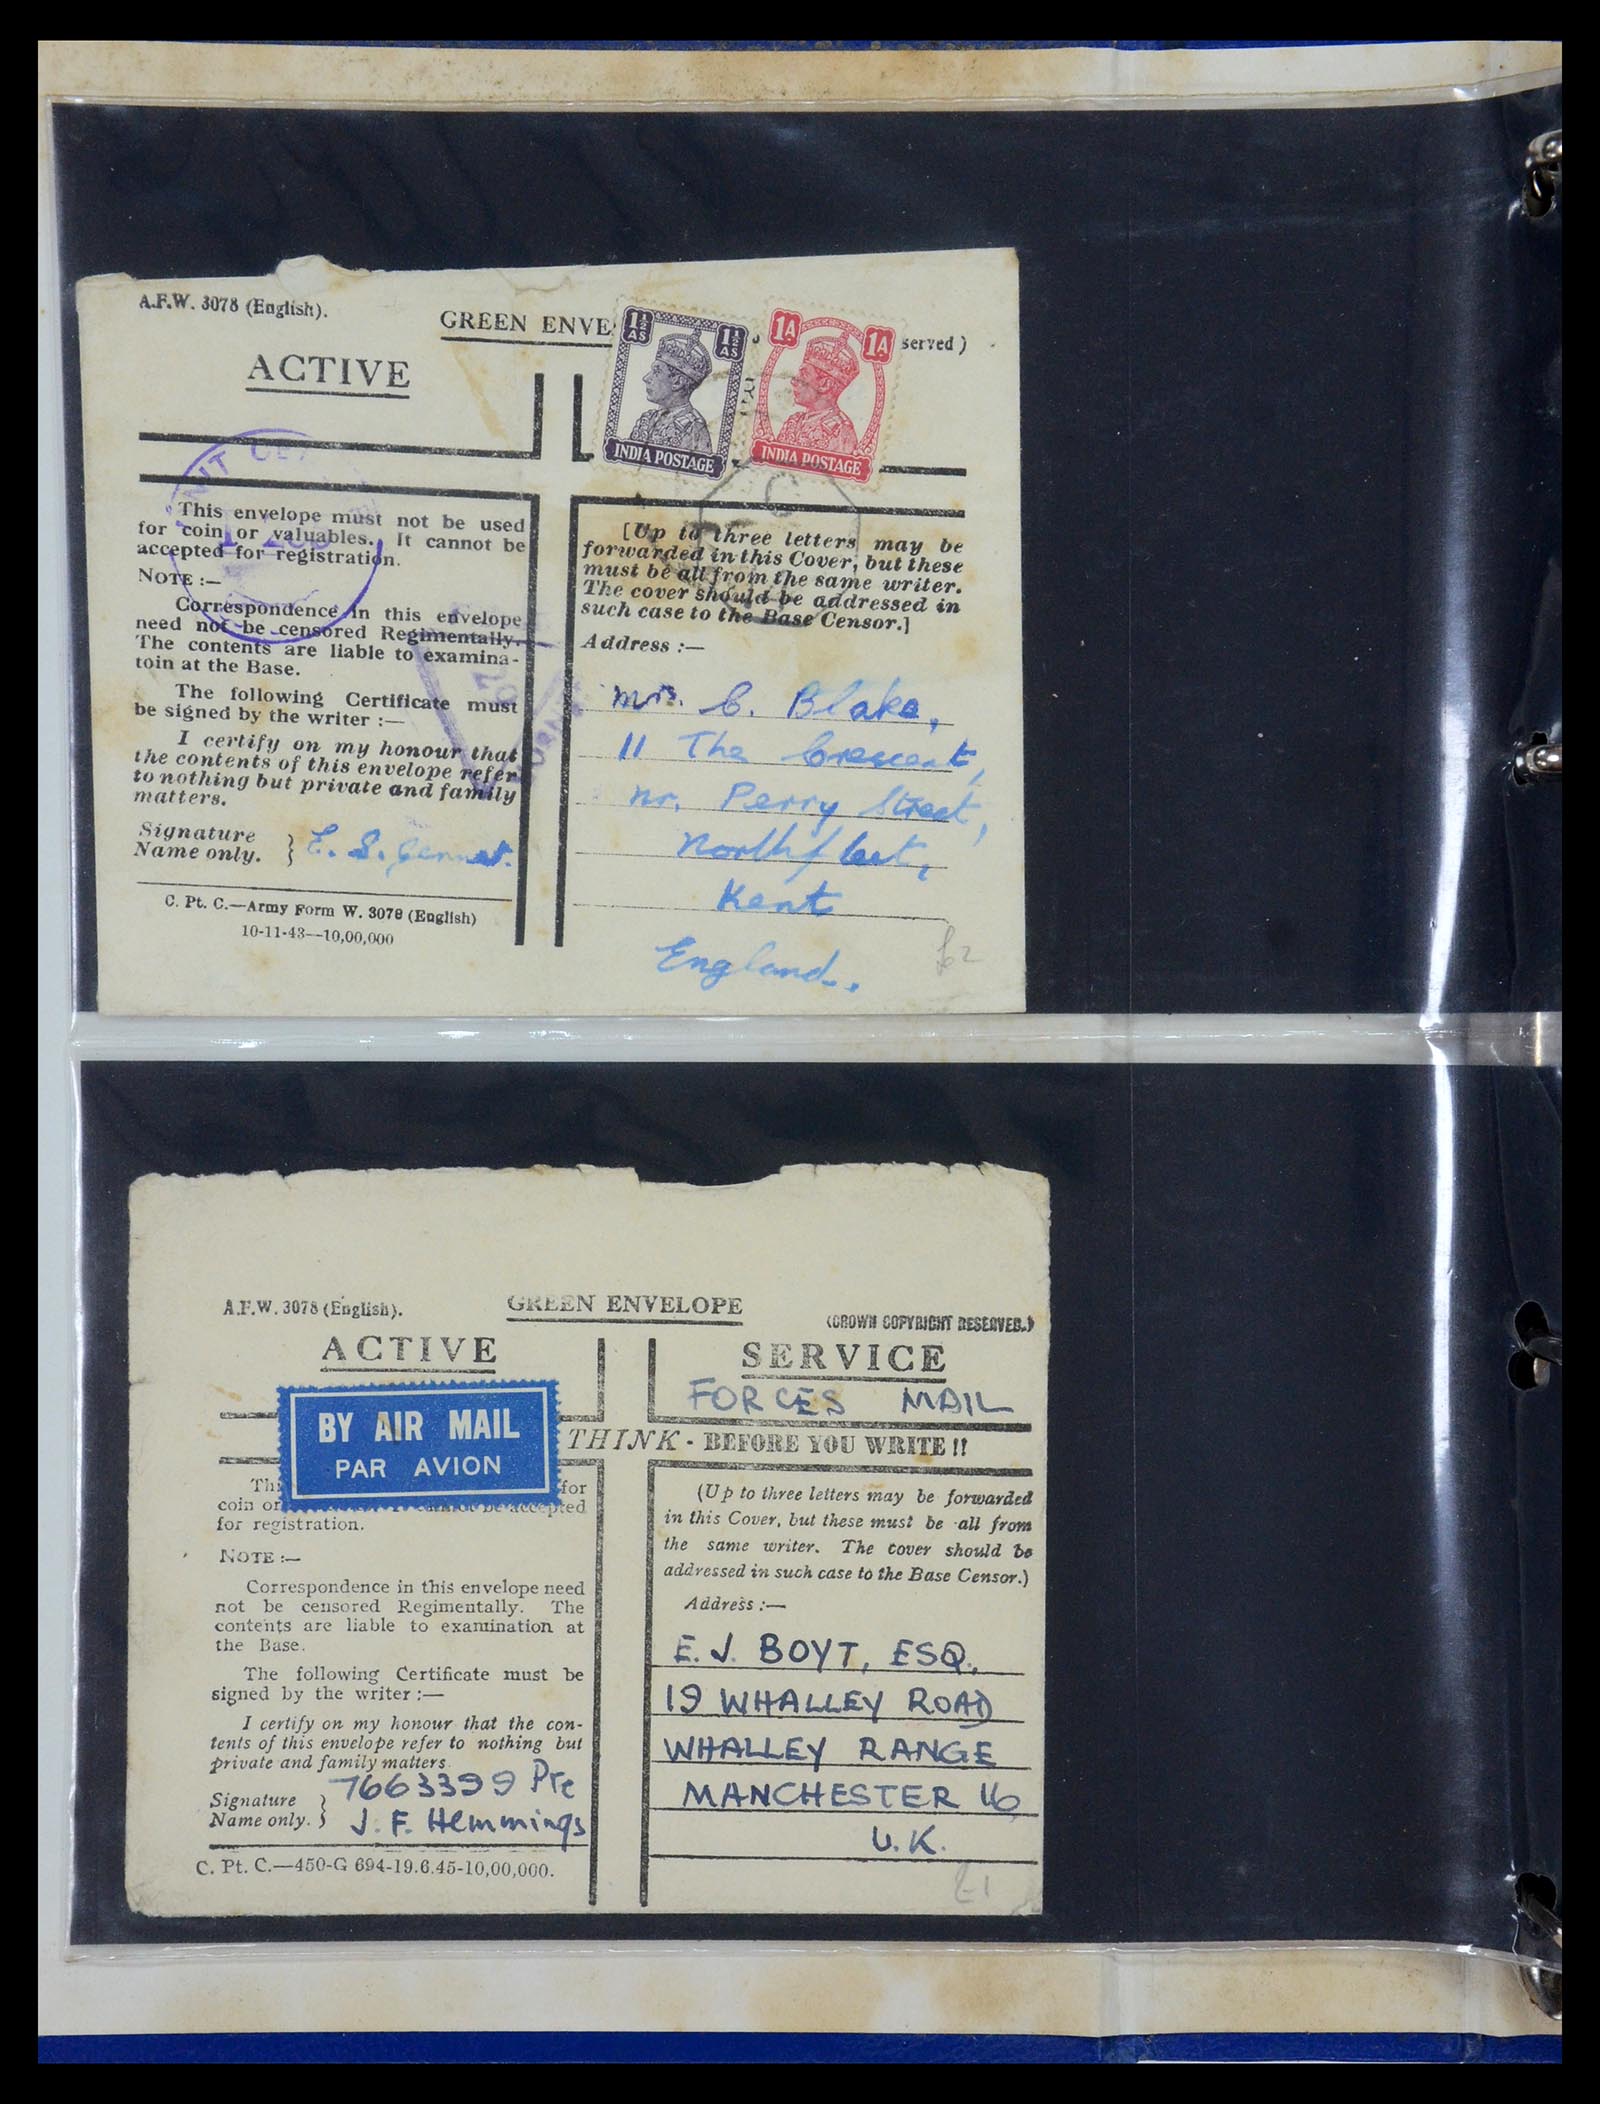 A.F.W. 3078 (English).
GREEN ENVE
served)
ACTIVE
1½ AS 1½ AS
INDIA POSTAGE
1A 1A
INDIA POSTAGE
UNIT CE
This envelope must not be used
for coin or valuables. It cannot be
accepted for registration.
NOTE :—
Correspondence in this envelope
need not be censored Regimentally.
The contents are liable to examina-
toin at the Base.
The following Certificate must
be signed by the writer :—
I certify on my honour that
the contents of this envelope refer
to nothing but private and family
matters.
Signature
Name only. } E. S.
C. Pt. C.—Army Form W. 3078 (English)
10-11-43—10,00,000
C
[Up to three letters may be
forwarded in this Cover, but these
must be all from the same writer.
The cover should be addressed in
such case to the Base Censor.]
Address :—
Mrs. C. Blake,
11 The Crescent,
nr. Perry Street,
Northfleet,
Kent
England.
£2
A.F.W. 3078 (English).
GREEN ENVELOPE
(CROWN COPYRIGHT RESERVED.)
ACTIVE
SERVICE
FORCES MAIL
BY AIR MAIL
PAR AVION
THINK - BEFORE YOU WRITE !!
Thi for
coin or cannot be accepted
for registration.
NOTE :—
Correspondence in this envelope need
not be censored Regimentally. The
contents are liable to examination at
the Base.
The following Certificate must be
signed by the writer :—
I certify on my honour that the con-
tents of this envelope refer to nothing but
private and family matters.
7663399 Pte
Signature
Name only. } J. F. Hemmings
C. Pt. C.—450-G 694-19.6.45-10,00,000.
(Up to three letters may be forwarded
in this Cover, but these must be all from
the same writer. The cover should be
addressed in such case to the Base Censor.)
Address :—
E. J. BOYT, ESQ.,
19 WHALLEY ROAD
WHALLEY RANGE
MANCHESTER 16
U.K.
£1